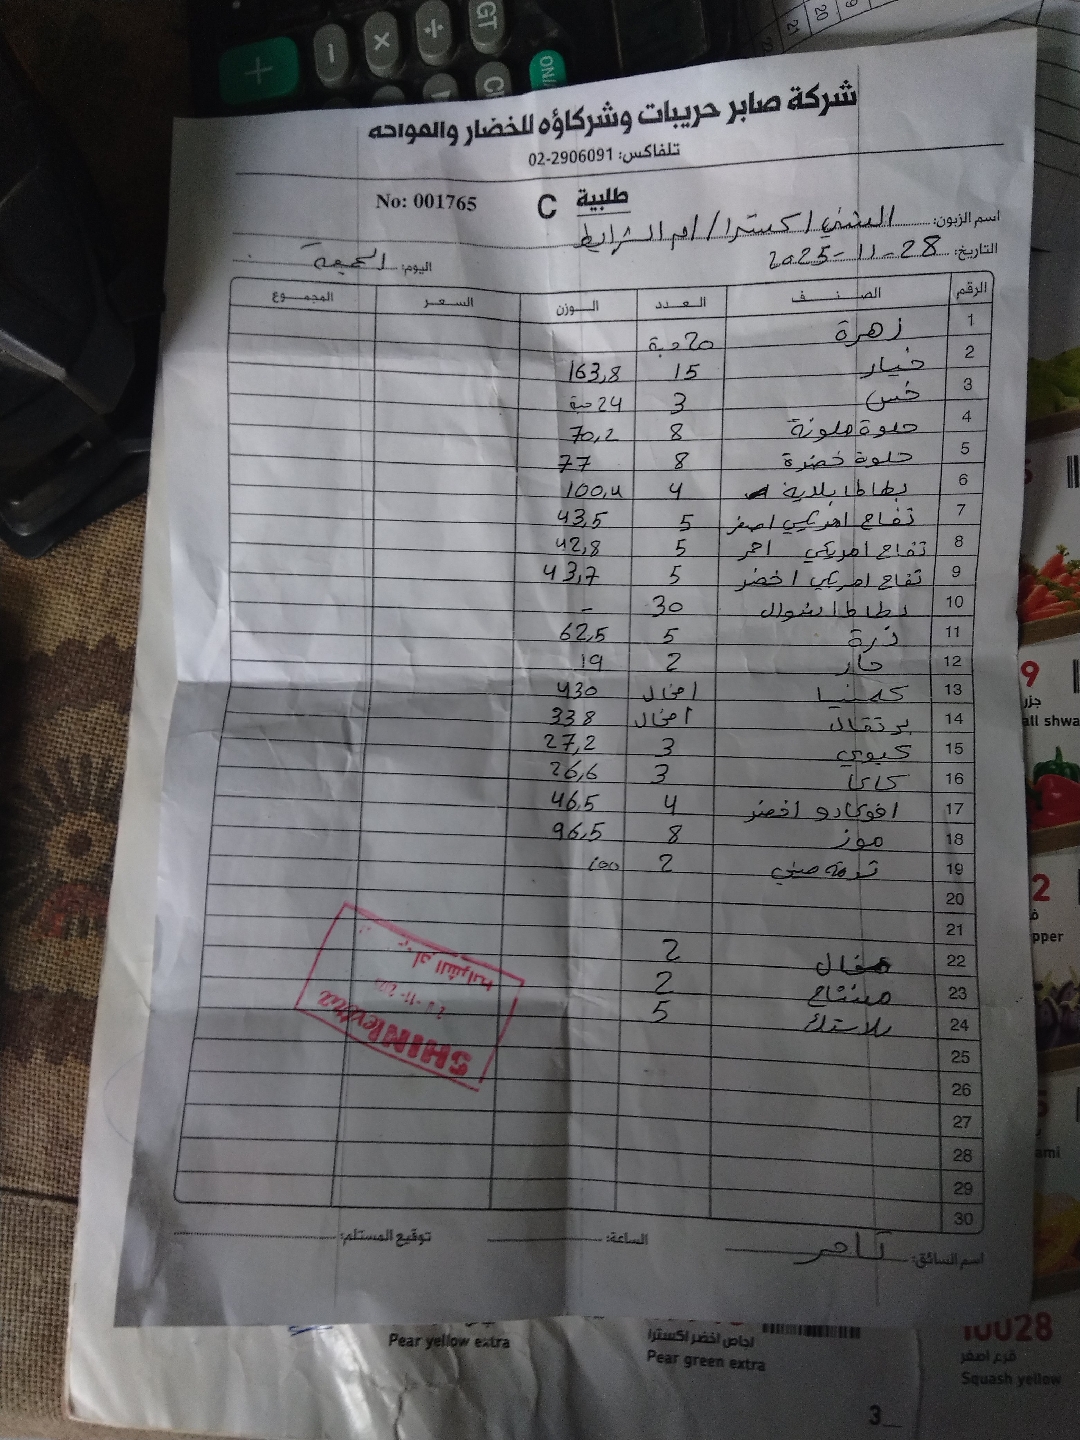 شركة صابر حريبات وشركاؤه للخضار والفواكه
تلفاكس: 02-2906091
No: 001765 C طلبية
اسم الزبون: الشني اكسترا / ام الشرايط
التاريخ: 28-11-2025 اليوم: الجمعة
الرقم الصنف العدد الوزن السعر المجموع
1 زهرة 20 حبة
2 خيار 15 163,8
3 خس 3 24 حبة
4 حلوة ملونة 8 70,2
5 حلوة خضرة 8 77
6 بطاطا بلادية 4 100,4
7 تفاح امريكي اصفر 5 43,5
8 تفاح امريكي احمر 5 42,8
9 تفاح امريكي اخضر 5 43,7
10 بطاطا شوال 30 -
11 ذرة 5 62,5
12 حار 2 19
13 كلمنتينا 430
14 برتقال 338
15 كيوي 3 27,2
16 كاكا 3 26,6
17 افوكادو اخضر 4 46,5
18 موز 8 96,5
19 2 100
20
21
22 مخال 2
23 مشتاح 2
24 بلاستك 5
25
26
27
28
29
30
SHINI extra
ام الشرايط
اسم السائق: ثامر الساعة: توقيع المستلم:
Pear yellow extra
اجاص اخضر اكسترا
Pear green extra
10028
قرع اصفر
Squash yellow
3
GT